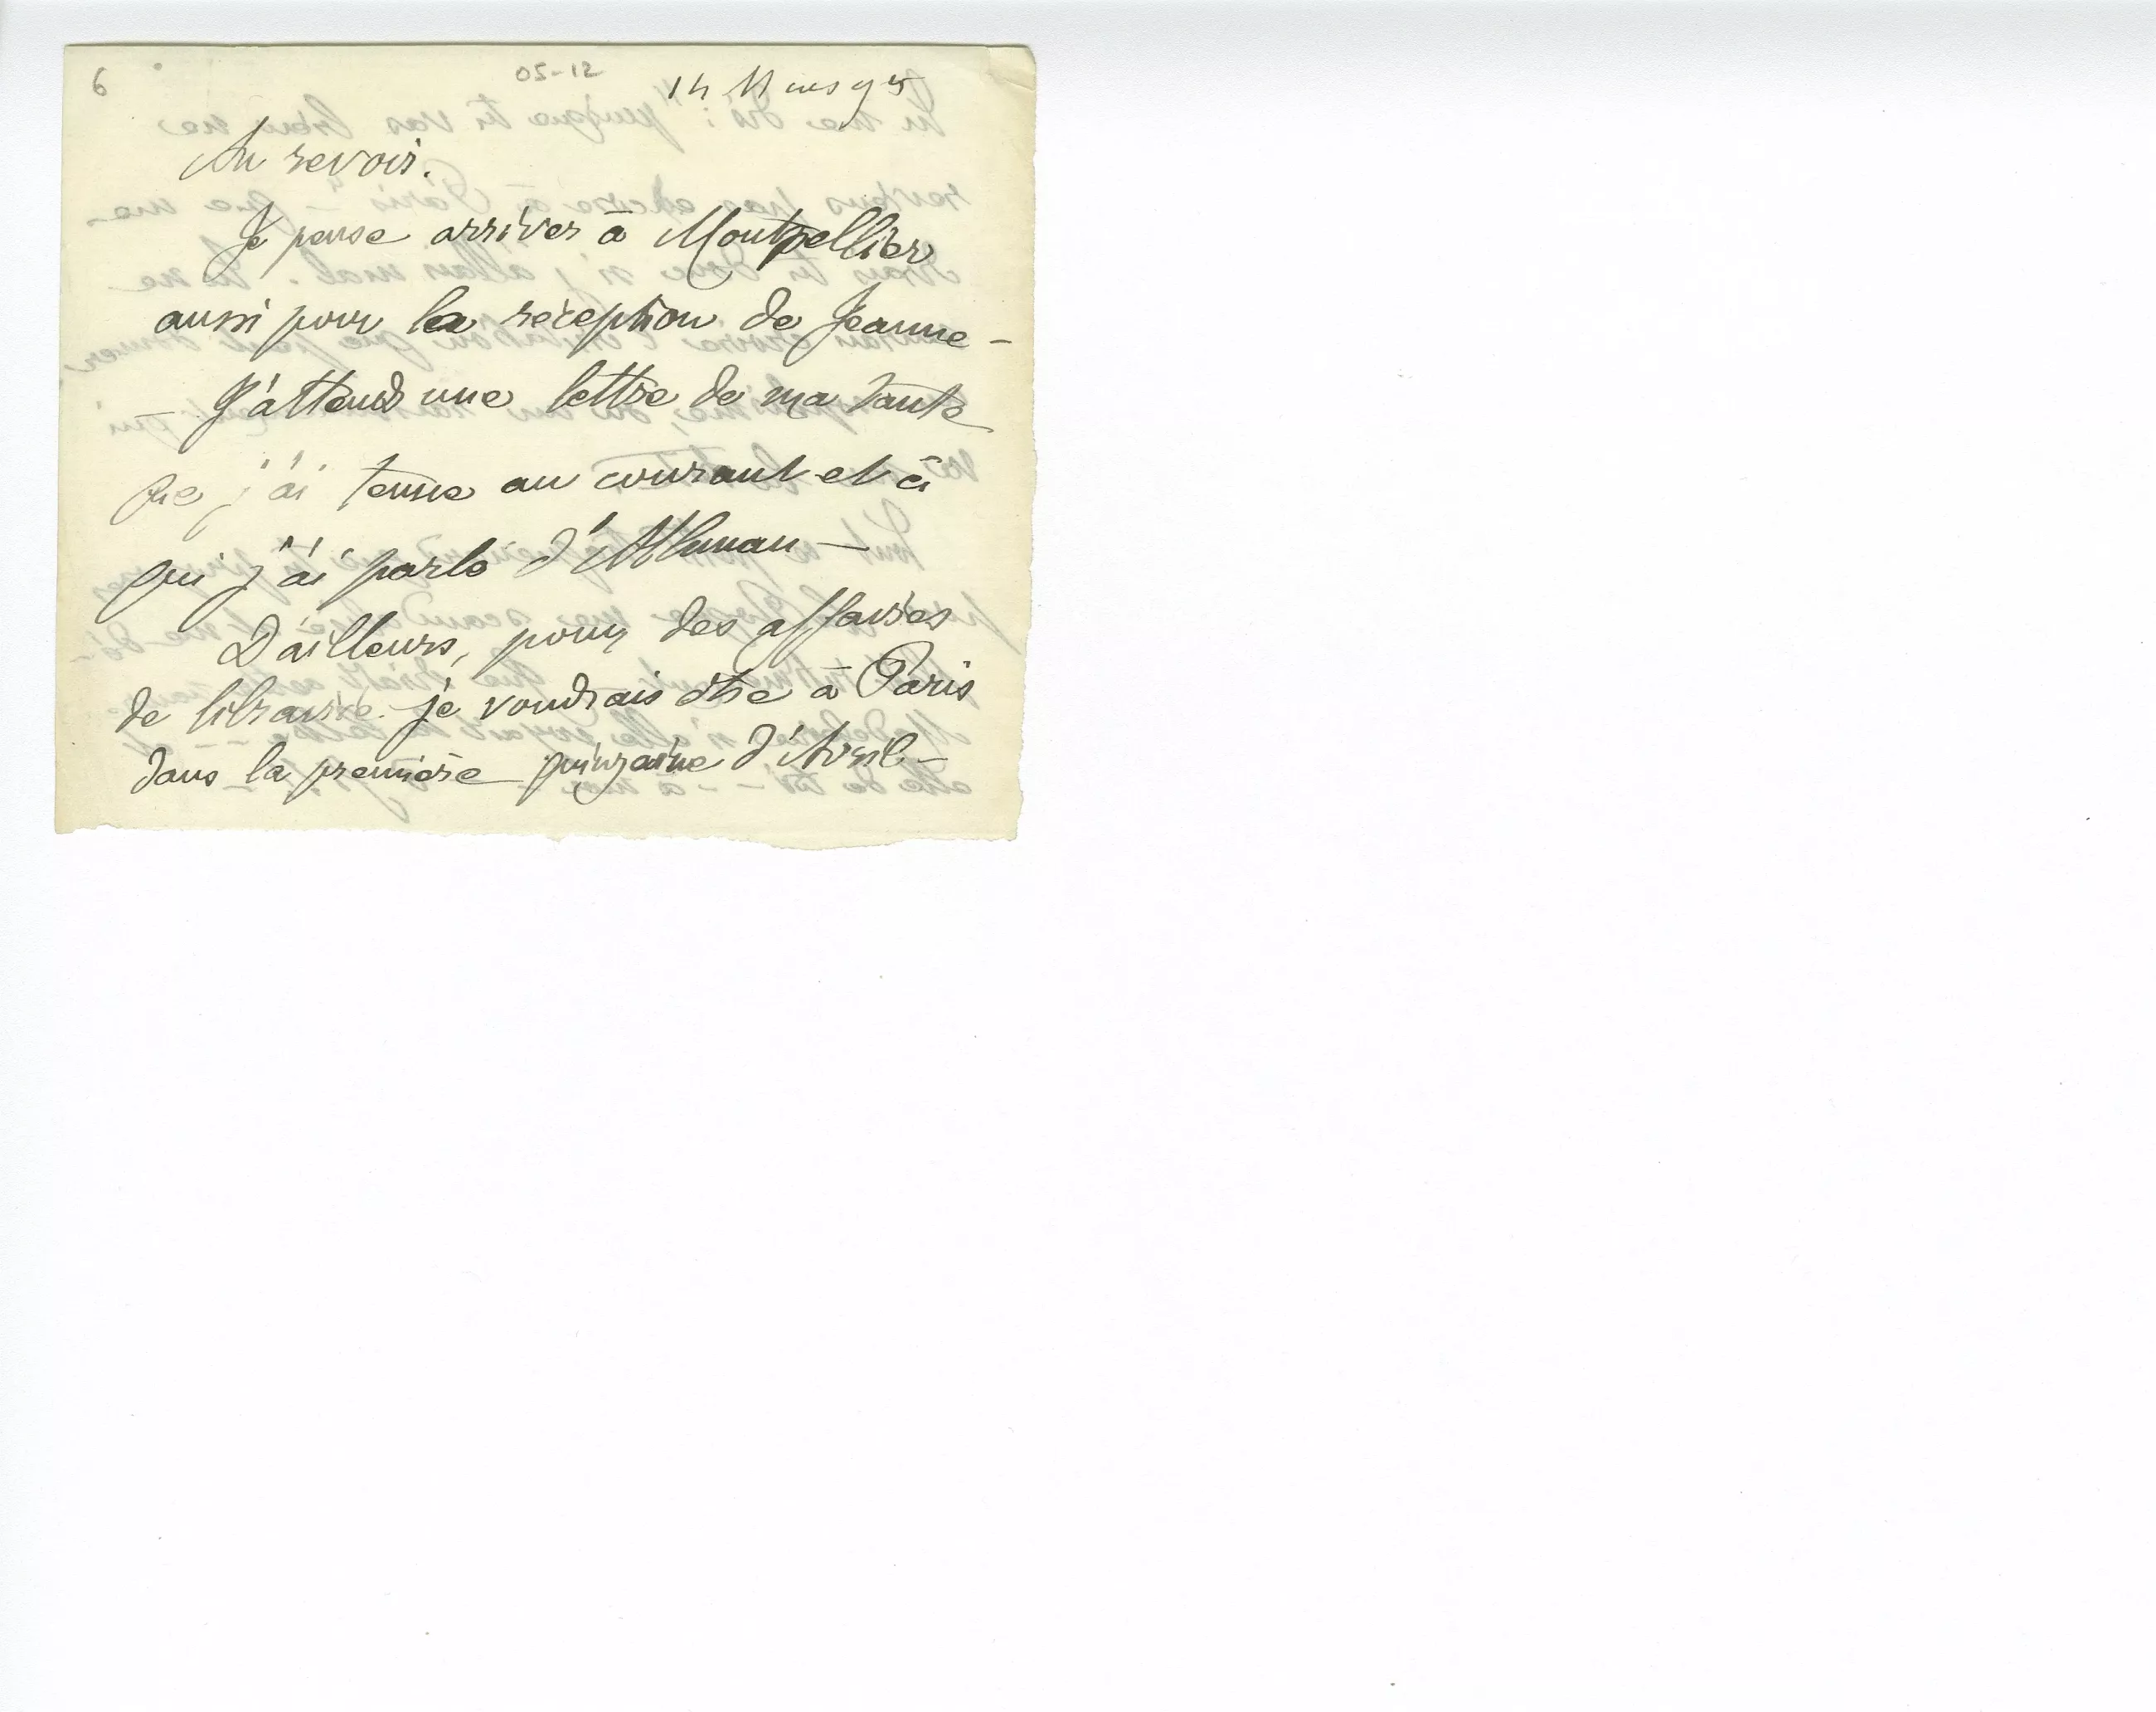 6
05-12
14 Mars 95
Au revoir.
Je pense arriver à Montpellier
aussi pour la réception de Jeanne —
— J'attends une lettre de ma tante
que j'ai tenue au courant et à
qui j'ai parlé d'Athman —
D'ailleurs, pour des affaires
de librairie je voudrais être à Paris
dans la première quinzaine d'Avril —